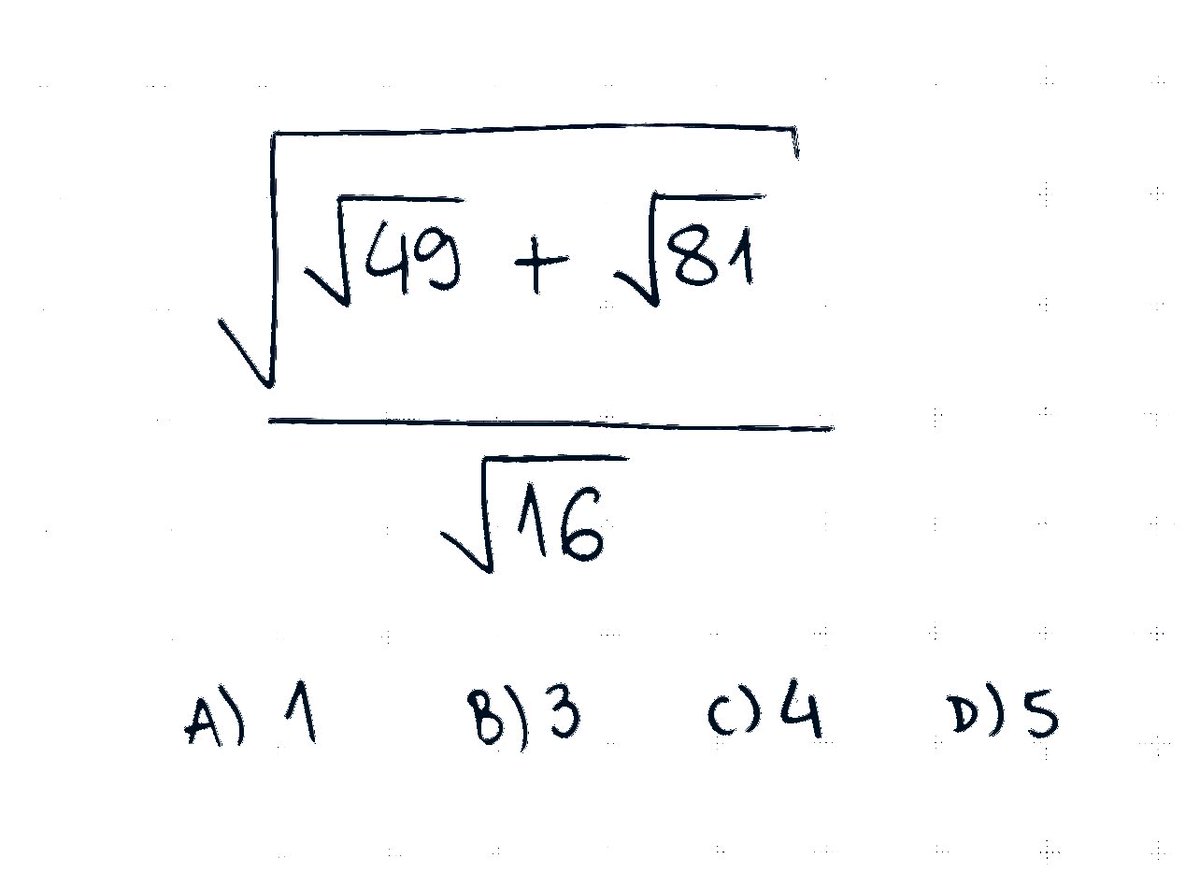 √(√49 + √81)
√16
A) 1 B) 3 C) 4 D) 5